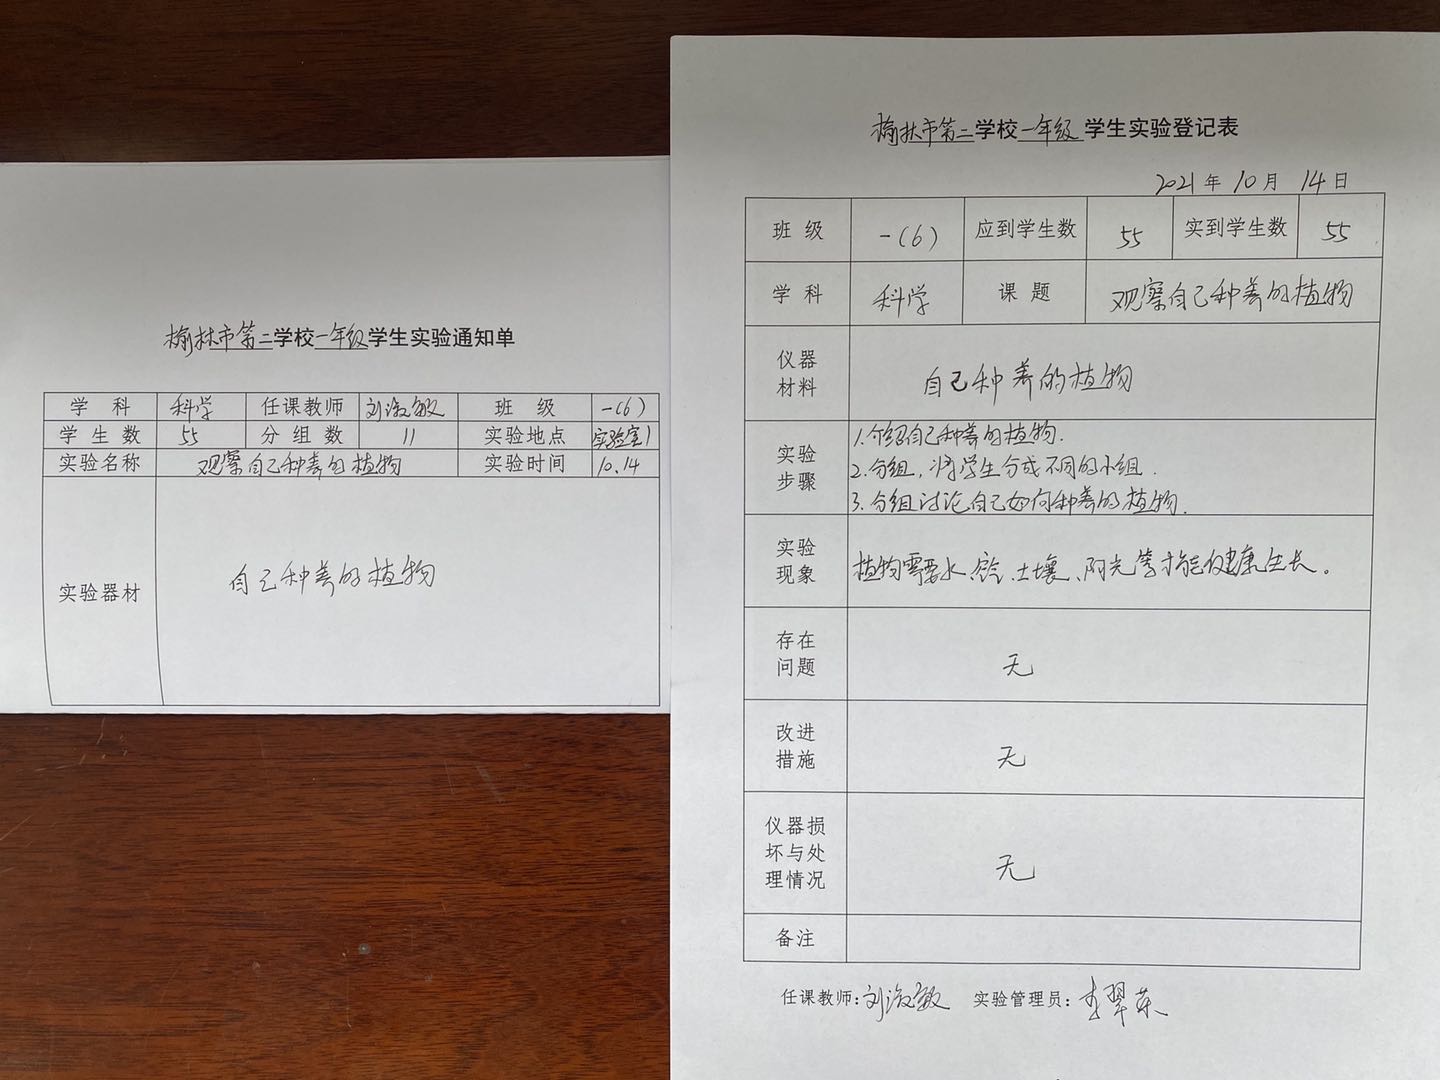 榆林市第二学校一年级学生实验通知单
学 科 科学 任课教师 刘淑敏 班 级 一(6)
学 生 数 55 分 组 数 11 实验地点 实验室1
实验名称 观察自己种养的植物 实验时间 10.14
实验器材 自己种养的植物
榆林市第二学校一年级学生实验登记表
2021年10月14日
班 级 一(6) 应到学生数 55 实到学生数 55
学 科 科学 课 题 观察自己种养的植物
仪器
材料
自己种养的植物
实验
步骤
1.介绍自己种养的植物.
2.分组,将学生分成不同的小组.
3.分组讨论自己如何种养的植物.
实验
现象
植物需要水、空气、土壤、阳光等才能健康生长。
存在
问题
无
改进
措施
无
仪器损
坏与处
理情况
无
备注
任课教师:刘淑敏 实验管理员:李翠荣